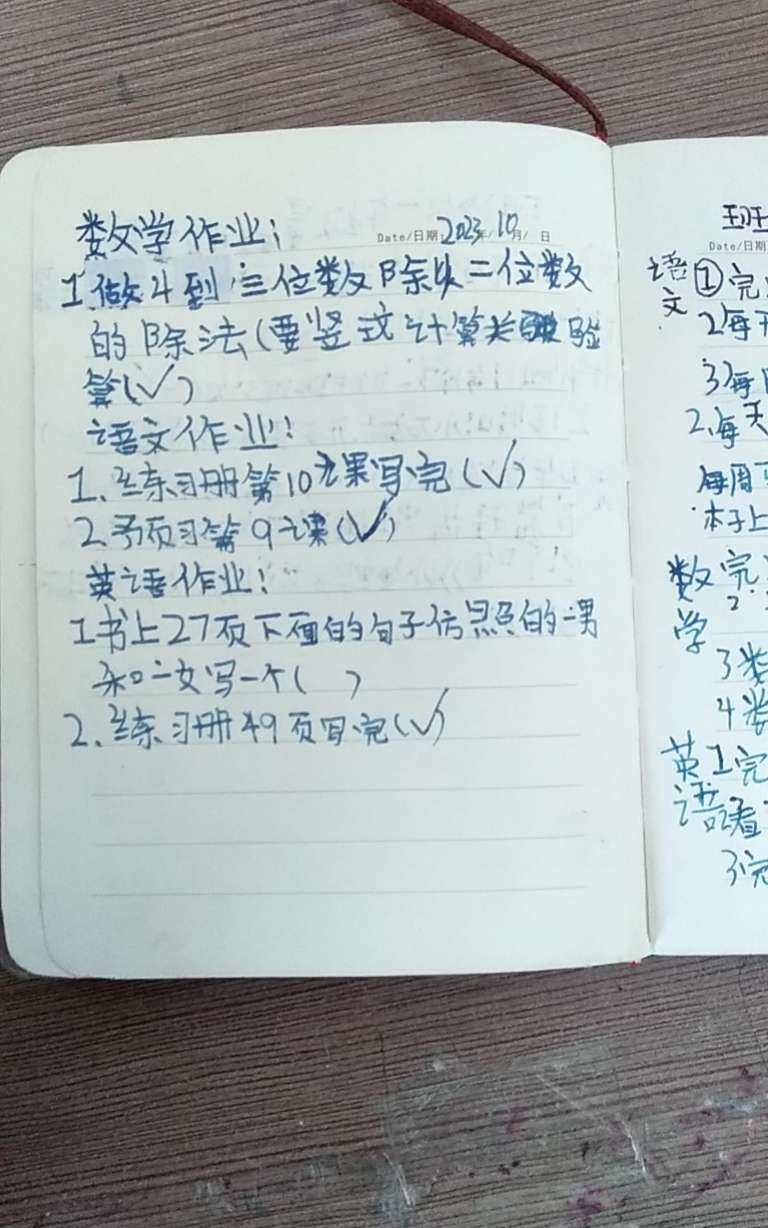 数学作业：
Date/日期： 2023年/10月/ 日
1.做4到三位数除以二位数
的除法(要竖式计算并 验
算(√)
语文作业！
1、练习册第10课写完(√)
2.予页习第9课(√)
英语作业！
1.书上27页下面的句子仿照的一男
和一女写一个( )
2、练习册49页写完(√)
班
Date/日期
语文
①完
2每天
3)每
2.每天
每周
本子上
数学
完
2
3类
4类
英语
1.完
2看
3完